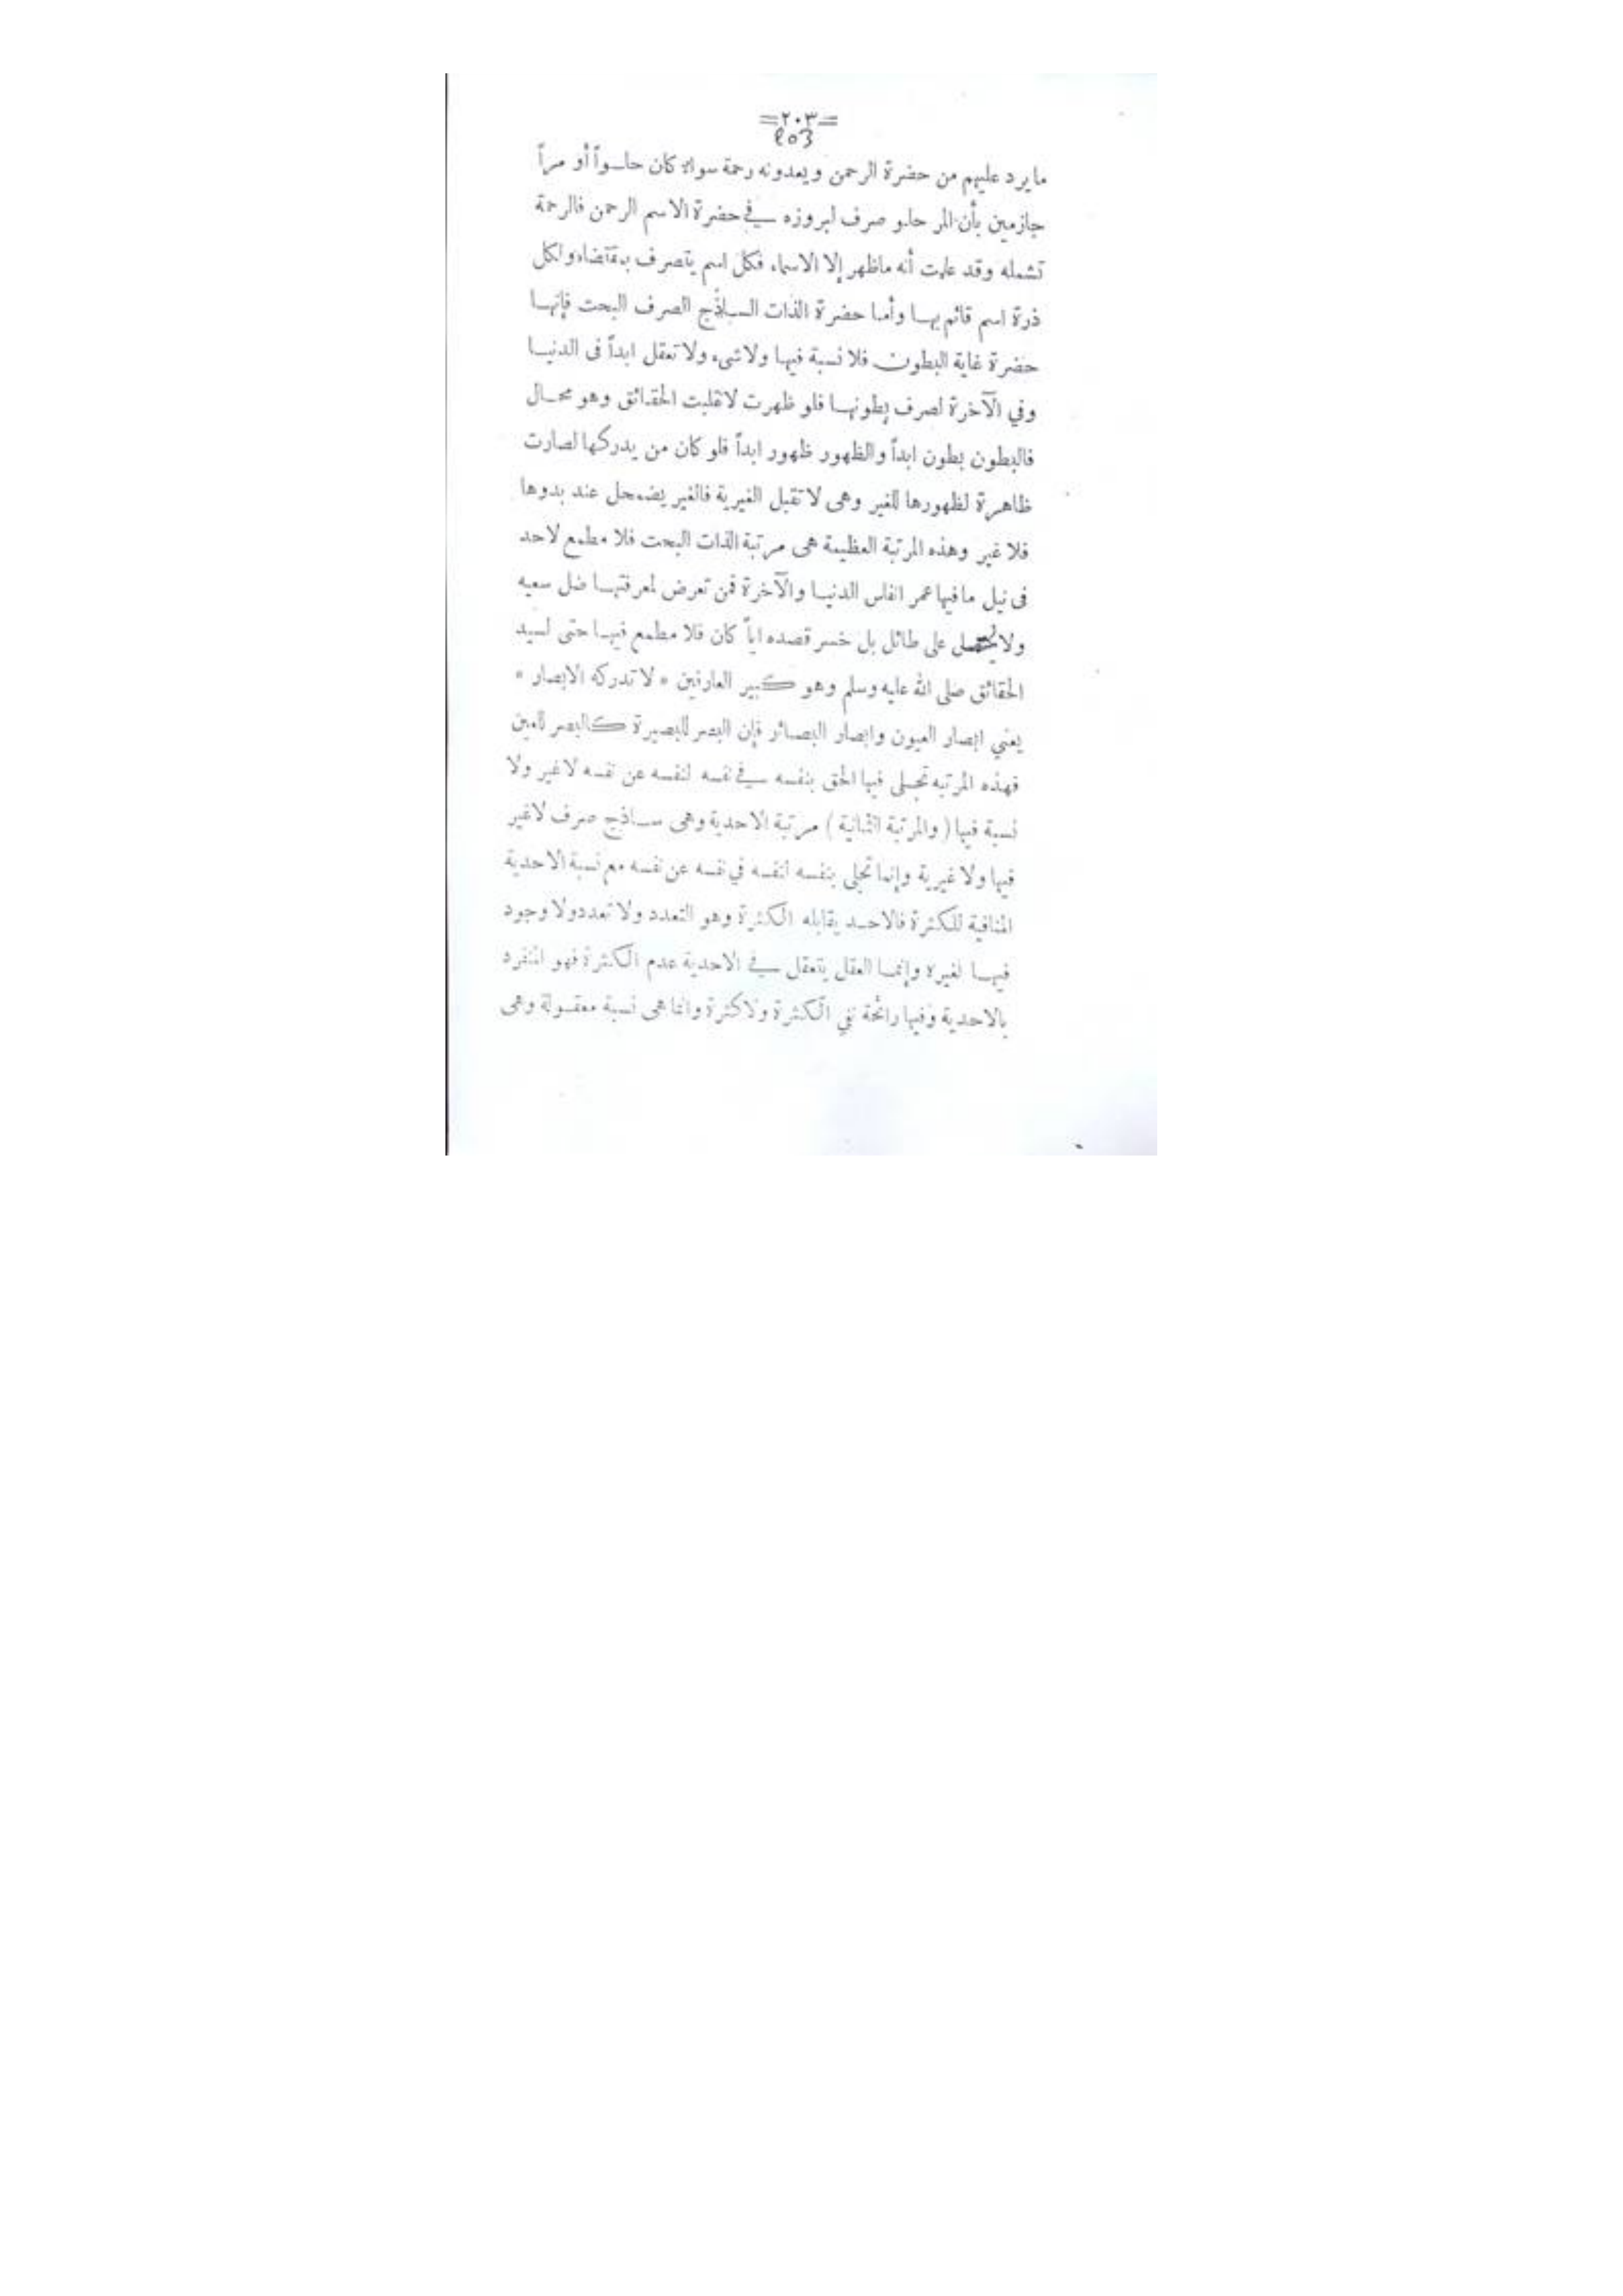 =٢٠٣=
203
ما يرد عليهم من حضرة الرحمن ويعدونه رحمة سواء كان حلواً أو مراً
جازمين بأن المر حلو صرف لبروزه في حضرة الاسم الرحمن فالرحمة
تشمله وقد علمت أنه ماظهر إلا الاسماء فكل اسم يتصرف بمقتضاه ولكل
ذرة اسم قائم بها وأما حضرة الذات الساذج الصرف البحت فإنها
حضرة غاية البطون فلا نسبة فيها ولاشيء ولا تعقل ابداً فى الدنيا
وفي الآخرة لصرف بطونها فلو ظهرت لانقلبت الحقائق وهو محال
فالبطون بطون ابداً والظهور ظهور ابداً فلو كان من يدركها لصارت
ظاهرة لظهورها للغير وهى لا تقبل الغيرية فالغير يضمحل عند بدوها
فلا غير وهذه المرتبة العظيمة هى مرتبة الذات البحت فلا مطمع لاحد
فى نيل مافيها عمر انفاس الدنيا والآخرة فمن تعرض لمعرفتها ضل سعيه
ولا على طائل بل خسر قصده اياً كان فلا مطمع فيها حتى لسيد
الحقائق صلى الله عليه وسلم وهو كبير العارفين « لا تدركه الابصار »
يعني ابصار العيون وابصار البصائر فإن البصر للبصيرة كالبصر للعين
فهذه المرتبه تجلى فيها الحق بنفسه في نفسه لنفسه عن نفسه لاغير ولا
نسبة فيها ( والمرتبة الثانية ) مرتبة الاحدية وهى ساذج صرف لاغير
فيها ولا غيرية وإنما تجلى بنفسه لنفسه في نفسه عن نفسه مع نسبة الاحدية
المنافية للكثرة فالاحد يقابله الكثرة وهو التعدد ولا تعدد ولا وجود
فيها لغيره وإنما العقل يتعقل في الاحدية عدم الكثرة فهو المنفرد
بالاحدية وفيها رائحة نفي الكثرة ولاكثرة وانما هى نسبة معقولة وهى